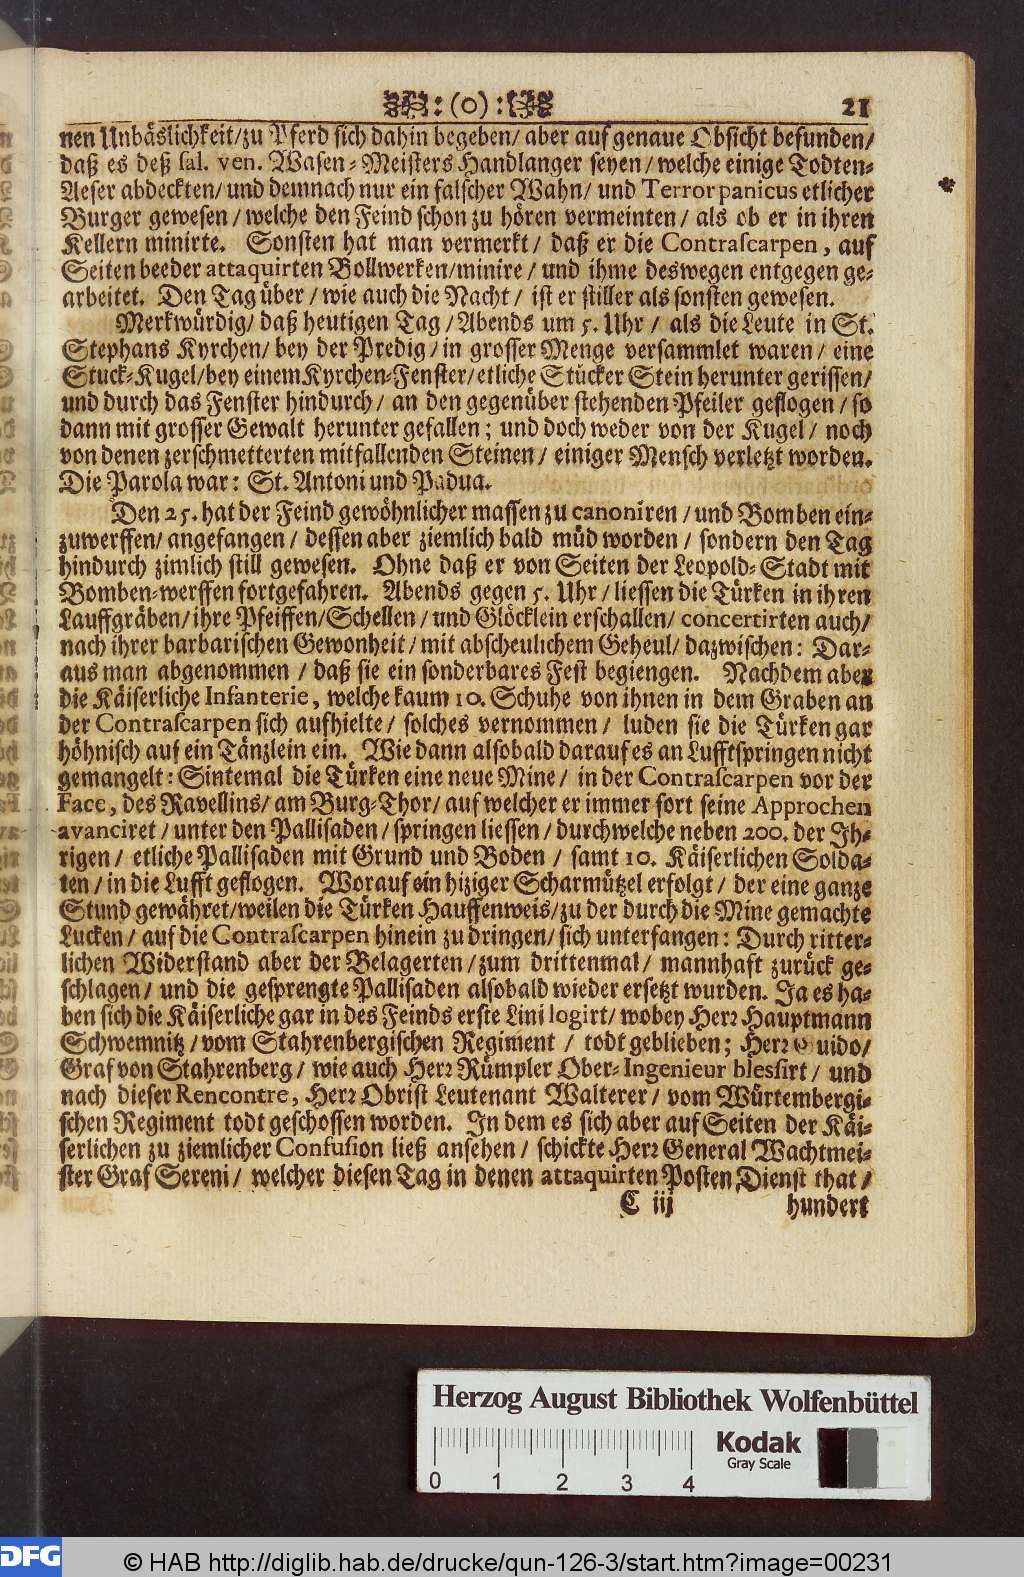 :(o): 21
nen Unbäslichkeit/zu Pferd sich dahin begeben/ aber auf genaue Obsicht befunden/
daß es deß sal. ven. Wasen-Meisters Handlanger seyen/ welche einige Todten-
Aeser abdeckten/ und demnach nur ein falscher Wahn/ und Terror panicus etlicher
Burger gewesen/ welche den Feind schon zu hören vermeinten/ als ob er in ihren
Kellern minirte. Sonsten hat man vermerkt/ daß er die Contrascarpen, auf
Seiten beeder attaquirten Bollwerken/minire/ und ihme deswegen entgegen ge-
arbeitet. Den Tag über/ wie auch die Nacht/ ist er stiller als sonsten gewesen.
Merkwürdig/ daß heutigen Tag/ Abends um 5. Uhr/ als die Leute in St.
Stephans Kyrchen/ bey der Predig/ in grosser Menge versammlet waren/ eine
Stuck-Kugel/bey einem Kyrchen-Fenster/etliche Stücker Stein herunter gerissen/
und durch das Fenster hindurch/ an den gegenüber stehenden Pfeiler geflogen/ so
dann mit grosser Gewalt herunter gefallen; und doch weder von der Kugel/ noch
von denen zerschmetterten mitfallenden Steinen/ einiger Mensch verletzt worden.
Die Parola war: St. Antoni und Padua.
Den 25. hat der Feind gewöhnlicher massen zu canoniren/ und Bomben ein-
zuwerffen/ angefangen/ dessen aber ziemlich bald müd worden/ sondern den Tag
hindurch zimlich still gewesen. Ohne daß er von Seiten der Leopold-Stadt mit
Bomben-werffen fortgefahren. Abends gegen 5. Uhr/ liessen die Türken in ihren
Lauffgräben/ ihre Pfeiffen/Schellen/ und Glöcklein erschallen/ concertirten auch/
nach ihrer barbarischen Gewonheit/ mit abscheulichem Geheul/ dazwischen: Dar-
aus man abgenommen/ daß sie ein sonderbares Fest begiengen. Nachdem aber
die Käiserliche Infanterie, welche kaum 10. Schuhe von ihnen in dem Graben an
der Contrascarpen sich aufhielte/ solches vernommen/ luden sie die Türken gar
höhnisch auf ein Tänzlein ein. Wie dann alsobald darauf es an Lufftspringen nicht
gemangelt: Sintemal die Türken eine neue Mine/ in der Contrascarpen vor der
Face, des Ravellins/ am Burg-Thor/ auf welcher er immer fort seine Approchen
avanciret/ unter den Pallisaden/ springen liessen/ durch welche neben 200. der Ih-
rigen/ etliche Pallisaden mit Grund und Boden/ samt 10. Käiserlichen Solda-
ten/ in die Lufft geflogen. Worauf ein hiziger Scharmützel erfolgt/ der eine ganze
Stund gewähret/weilen die Türken Hauffenweis/zu der durch die Mine gemachte
Lucken/ auf die Contrascarpen hinein zu dringen/ sich unterfangen: Durch ritter-
lichen Widerstand aber der Belagerten/ zum drittenmal/ mannhaft zurück ge-
schlagen/ und die gesprengte Pallisaden alsobald wieder ersetzt wurden. Ja es ha-
ben sich die Käiserliche gar in des Feinds erste Lini logirt/ wobey Herr Hauptmann
Schwemnitz/ vom Stahrenbergischen Regiment/ todt geblieben; Herr Guido/
Graf von Stahrenberg/ wie auch Herr Rümpler Ober-Ingenieur blessirt/ und
nach dieser Rencontre, Herr Obrist Leutenant Walterer/ vom Würtembergi-
schen Regiment todt geschossen worden. In dem es sich aber auf Seiten der Käi-
serlichen zu ziemlicher Confusion ließ ansehen/ schickte Herr General Wachtmei-
ster Graf Sereni/ welcher diesen Tag in denen attaquirten Posten Dienst that/
C iij hundert
Herzog August Bibliothek Wolfenbüttel
Kodak
Gray Scale
0 1 2 3 4
DFG © HAB http://diglib.hab.de/drucke/qun-126-3/start.htm?image=00231